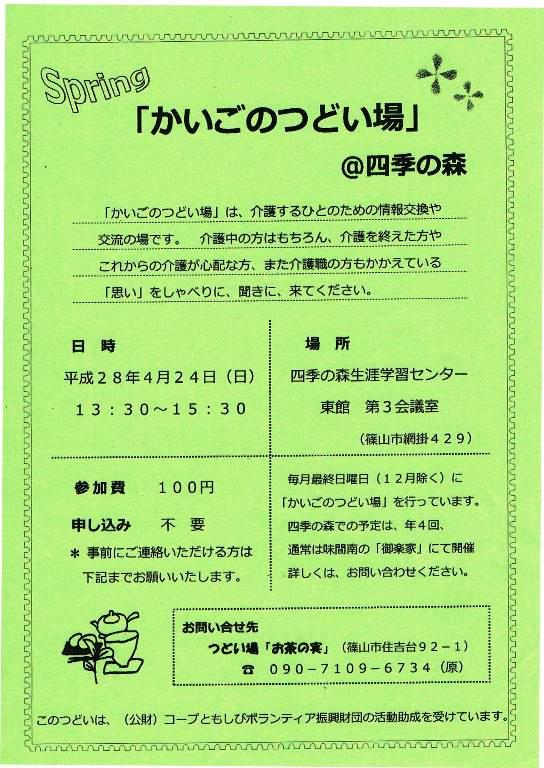 Spring
「かいごのつどい場」
@四季の森
「かいごのつどい場」は、介護するひとのための情報交換や
交流の場です。 介護中の方はもちろん、介護を終えた方や
これからの介護が心配な方、また介護職の方もかかえている
「思い」をしゃべりに、聞きに、来てください。
日 時
平成28年4月24日（日）
13：30～15：30
場 所
四季の森生涯学習センター
東館 第3会議室
（篠山市網掛429）
参加費 100円
申し込み 不 要
＊ 事前にご連絡いただける方は
下記までお願いいたします。
毎月最終日曜日（12月除く）に
「かいごのつどい場」を行っています。
四季の森での予定は、年4回、
通常は味間南の「御楽家」にて開催
詳しくは、お問い合わせください。
お問い合せ先
つどい場「お茶の実」（篠山市住吉台92－1）
☎ 090－7109－6734（原）
このつどいは、（公財）コープともしびボランティア振興財団の活動助成を受けています。